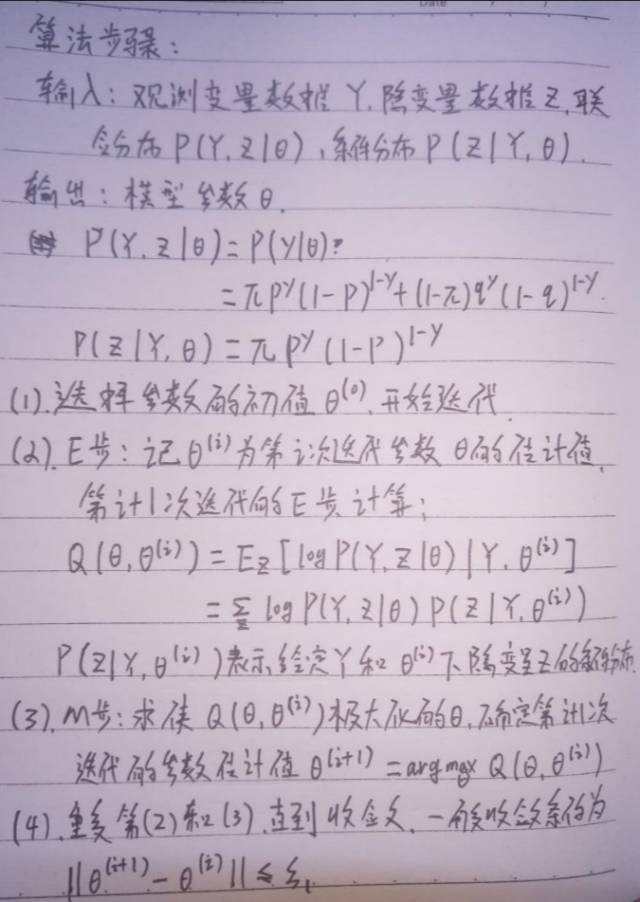 Date
算法步骤:
输入: 观测变量数据 Y, 隐变量数据 Z, 联
合分布 P(Y, Z|θ), 条件分布 P(Z|Y, θ).
输出: 模型参数 θ.
P(Y, Z|θ) = P(Y|θ)?
= π p^y (1-p)^{1-y} + (1-π) q^y (1-q)^{1-y}.
P(Z|Y, θ) = π p^y (1-p)^{1-y}
(1). 选择参数的初值 θ^{(0)}, 开始迭代
(2). E步: 记 θ^{(i)} 为第 i 次迭代参数 θ 的估计值,
第 i+1 次迭代的 E 步计算;
Q(θ, θ^{(i)}) = E_Z [log P(Y, Z|θ) | Y, θ^{(i)}]
= Σ_Z log P(Y, Z|θ) P(Z|Y, θ^{(i)})
P(Z|Y, θ^{(i)}) 表示给定 Y 和 θ^{(i)} 下隐变量 Z 的条件分布.
(3). M步: 求使 Q(θ, θ^{(i)}) 极大化的 θ, 确定第 i+1 次
迭代的参数估计值 θ^{(i+1)} = argmax Q(θ, θ^{(i)})
(4). 重复第(2)和(3), 直到收敛, 一般收敛条件为
||θ^{(i+1)} - θ^{(i)}|| ≤ ξ_1